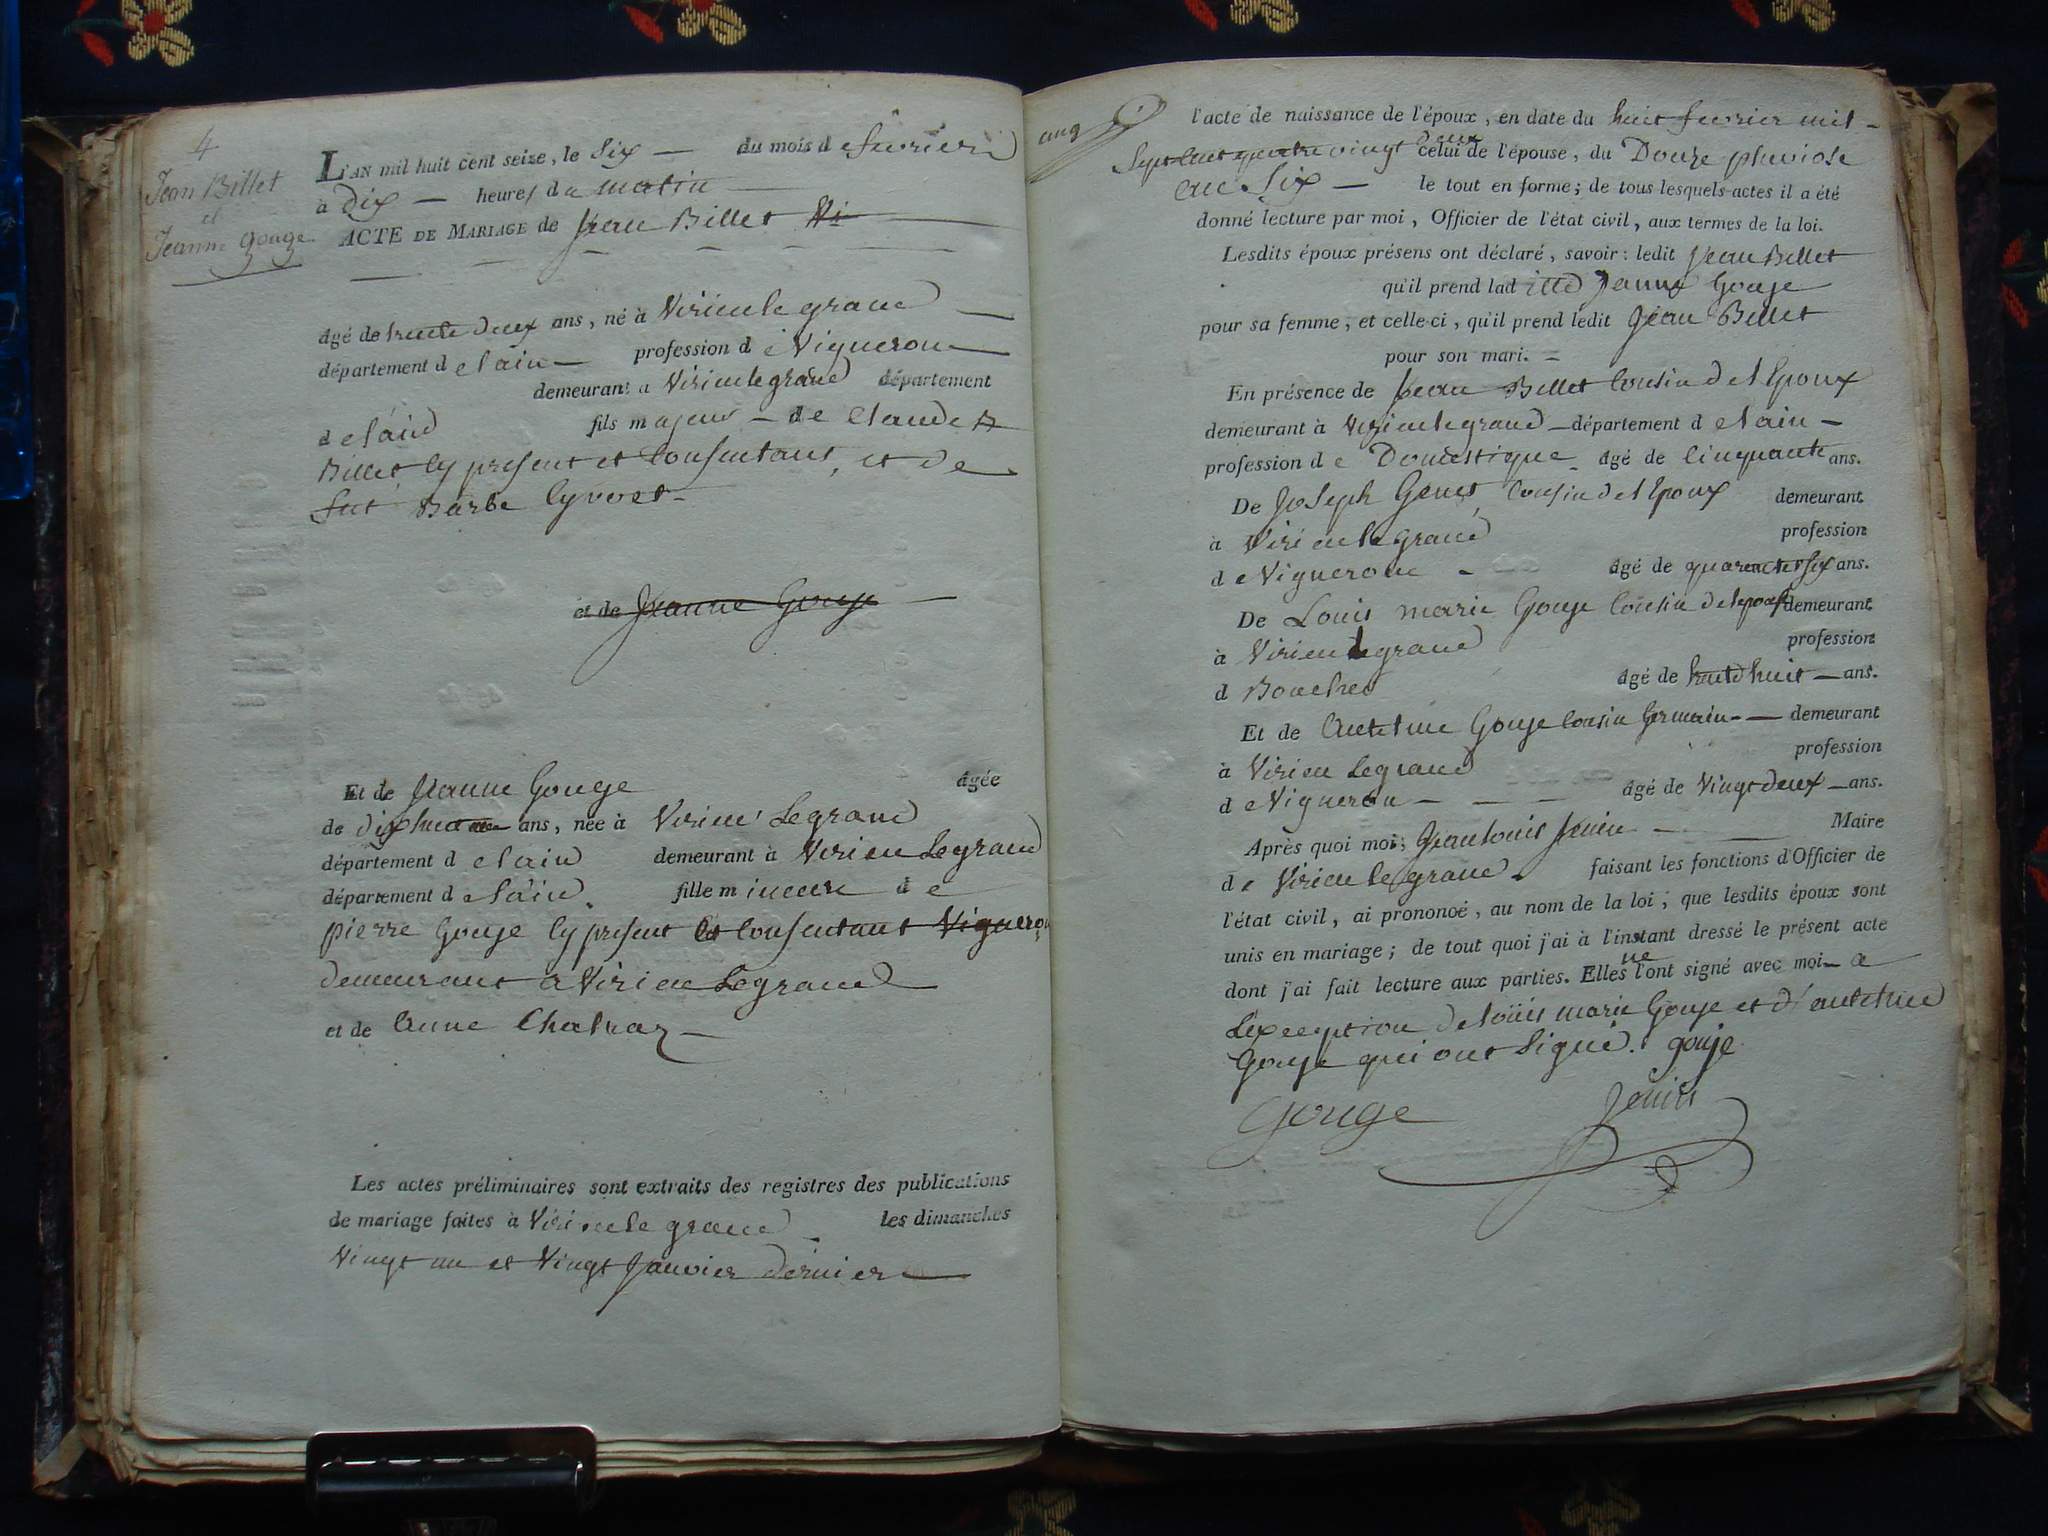 4
Jean Billet
et
Jeanne Gouge
L'AN mil huit cent seize, le Six — du mois d e fevrier
à dix — heures du matin
ACTE DE MARIAGE de Jean Billet
âgé de trente deux ans, né à Virieu le grand —
département d e lain — profession d e Vigneron —
demeurant a Virieulegrand département
d e l'ain fils m ajeur — de Claude
Billet Cy present et Consentant, et de
fut Barbe Cyvoct —
et de Jeanne Gouje —
Et de Jeanne Gouge âgée
de dix huit ans, née à Virieu Legrand
département d e lain demeurant à Virieu Legrand
département d e l'ain. fille m ineure d e
pierre Gouje Cy present et Consentant Vigneron
demeurant a Virieu Legrand
et de Anne Chatnaz —
Les actes préliminaires sont extraits des registres des publications
de mariage faites à Virieu le grand les dimanches
Vingt un et Vingt Janvier dernier —
l'acte de naissance de l'époux, en date du huit fevrier mil —
Sept Cent quatre vingt deux celui de l'épouse, du Douze pluviose
an Six — le tout en forme; de tous lesquels actes il a été
donné lecture par moi, Officier de l'état civil, aux termes de la loi.
Lesdits époux présens ont déclaré, savoir: ledit Jean Billet
qu'il prend lad itte Janne Gouje
pour sa femme, et celle-ci, qu'il prend ledit Jean Billet
pour son mari. =
En présence de Jean Billet Cousin de l Epoux
demeurant à Virieulegrand — département d e lain —
profession d e Domestique — âgé de Cinquante ans.
De Joseph Genet Cousin de l Epoux demeurant
à Virieu le grand profession
d e Vigneron — âgé de quarente six ans.
De Louis marie Gouje Cousin de lepouse demeurant
à Virieu le grand profession
d Boucher âgé de trente huit — ans.
Et de Antelme Gouje Cousin Germain — demeurant
à Virieu Legrand profession
d e Vigneron — — — âgé de Vingt deux — ans.
Après quoi moi, Jean Louis Jenin — — Maire
d e Virieu le grand faisant les fonctions d'Officier de
l'état civil, ai prononcé, au nom de la loi; que lesdits époux sont
unis en mariage; de tout quoi j'ai à l'instant dressé le présent acte
dont j'ai fait lecture aux parties. Elles ne l'ont signé avec moi — a
L'exception de loüis marie Gouje et d'antelme
Gouje qui ont Signé. gouje
Gouge Jenin